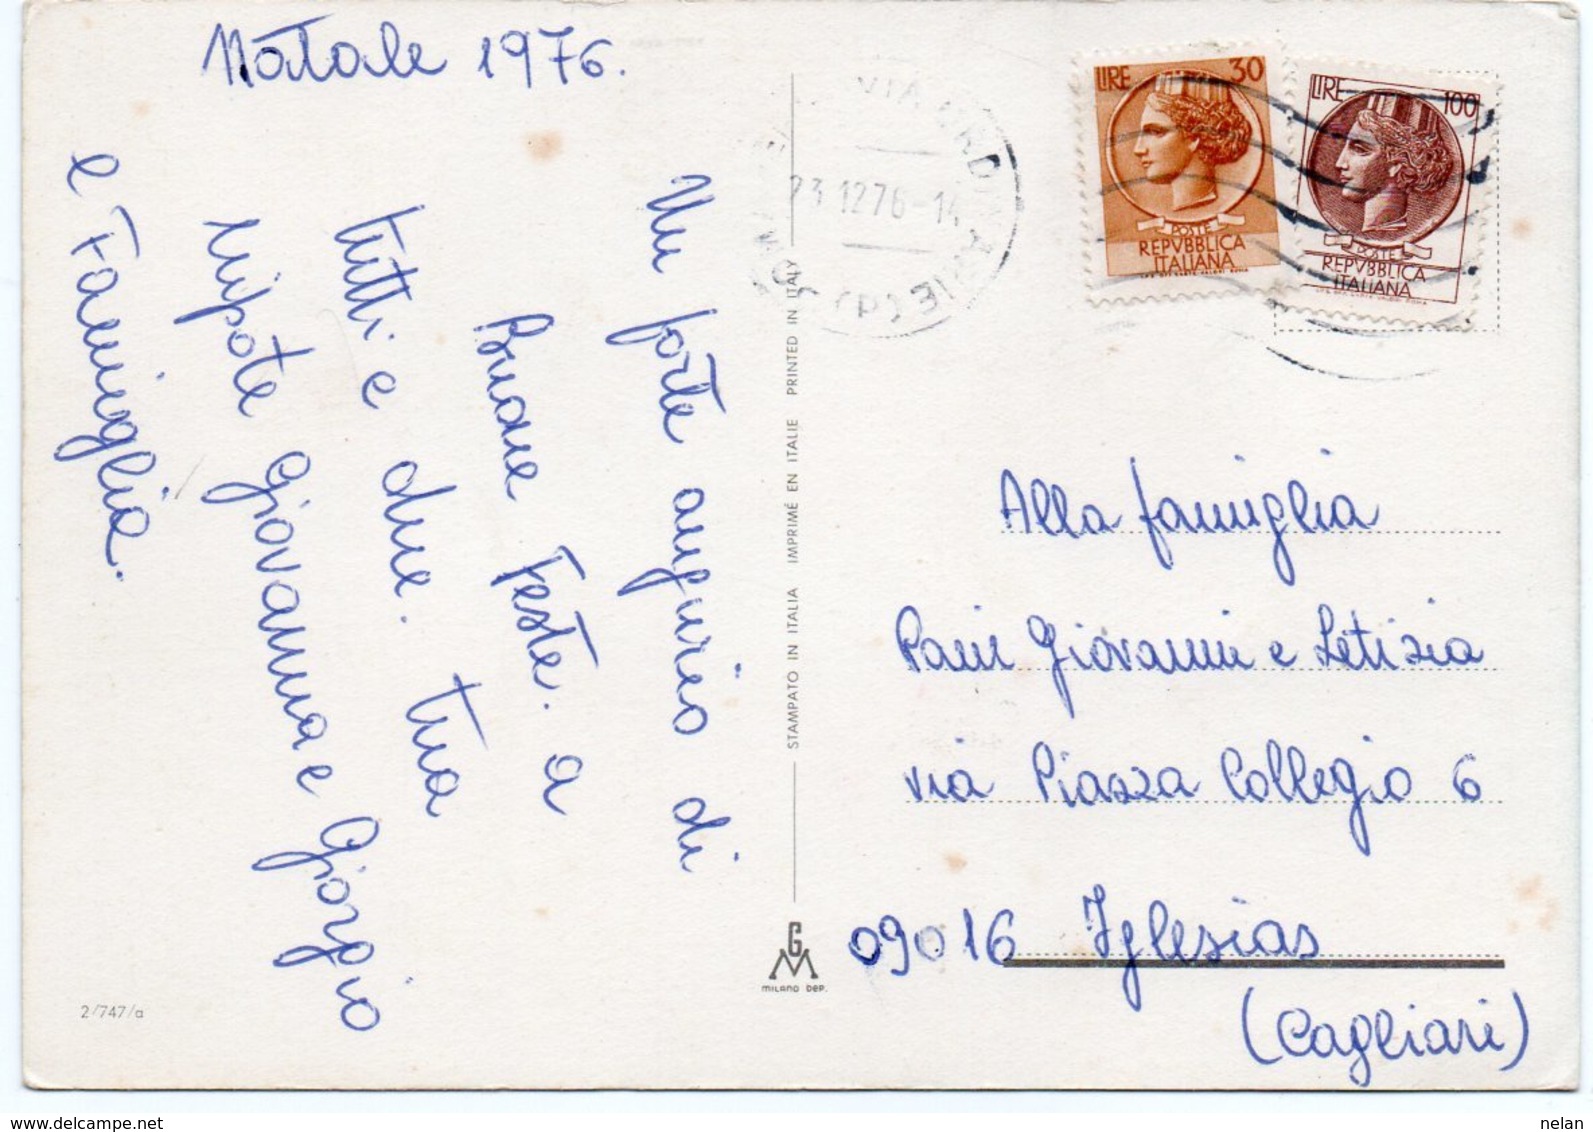 Natale 1976.
Un forte augurio di
Buone Feste. a
tutti e due. tua
nipote Giovanna e Giorgio
e Famiglia.
23.12.76-14
LIRE 30
POSTE
REPVBBLICA
ITALIANA
LIRE 100
POSTE
REPVBBLICA
ITALIANA
STAMPATO IN ITALIA IMPRIMÉ EN ITALIE PRINTED IN ITALY
Alla famiglia
Pani Giovanni e Letizia
via Piazza Collegio 6
09016 Iglesias
(Cagliari)
GM
MILANO DEP.
2/747/a
nelan